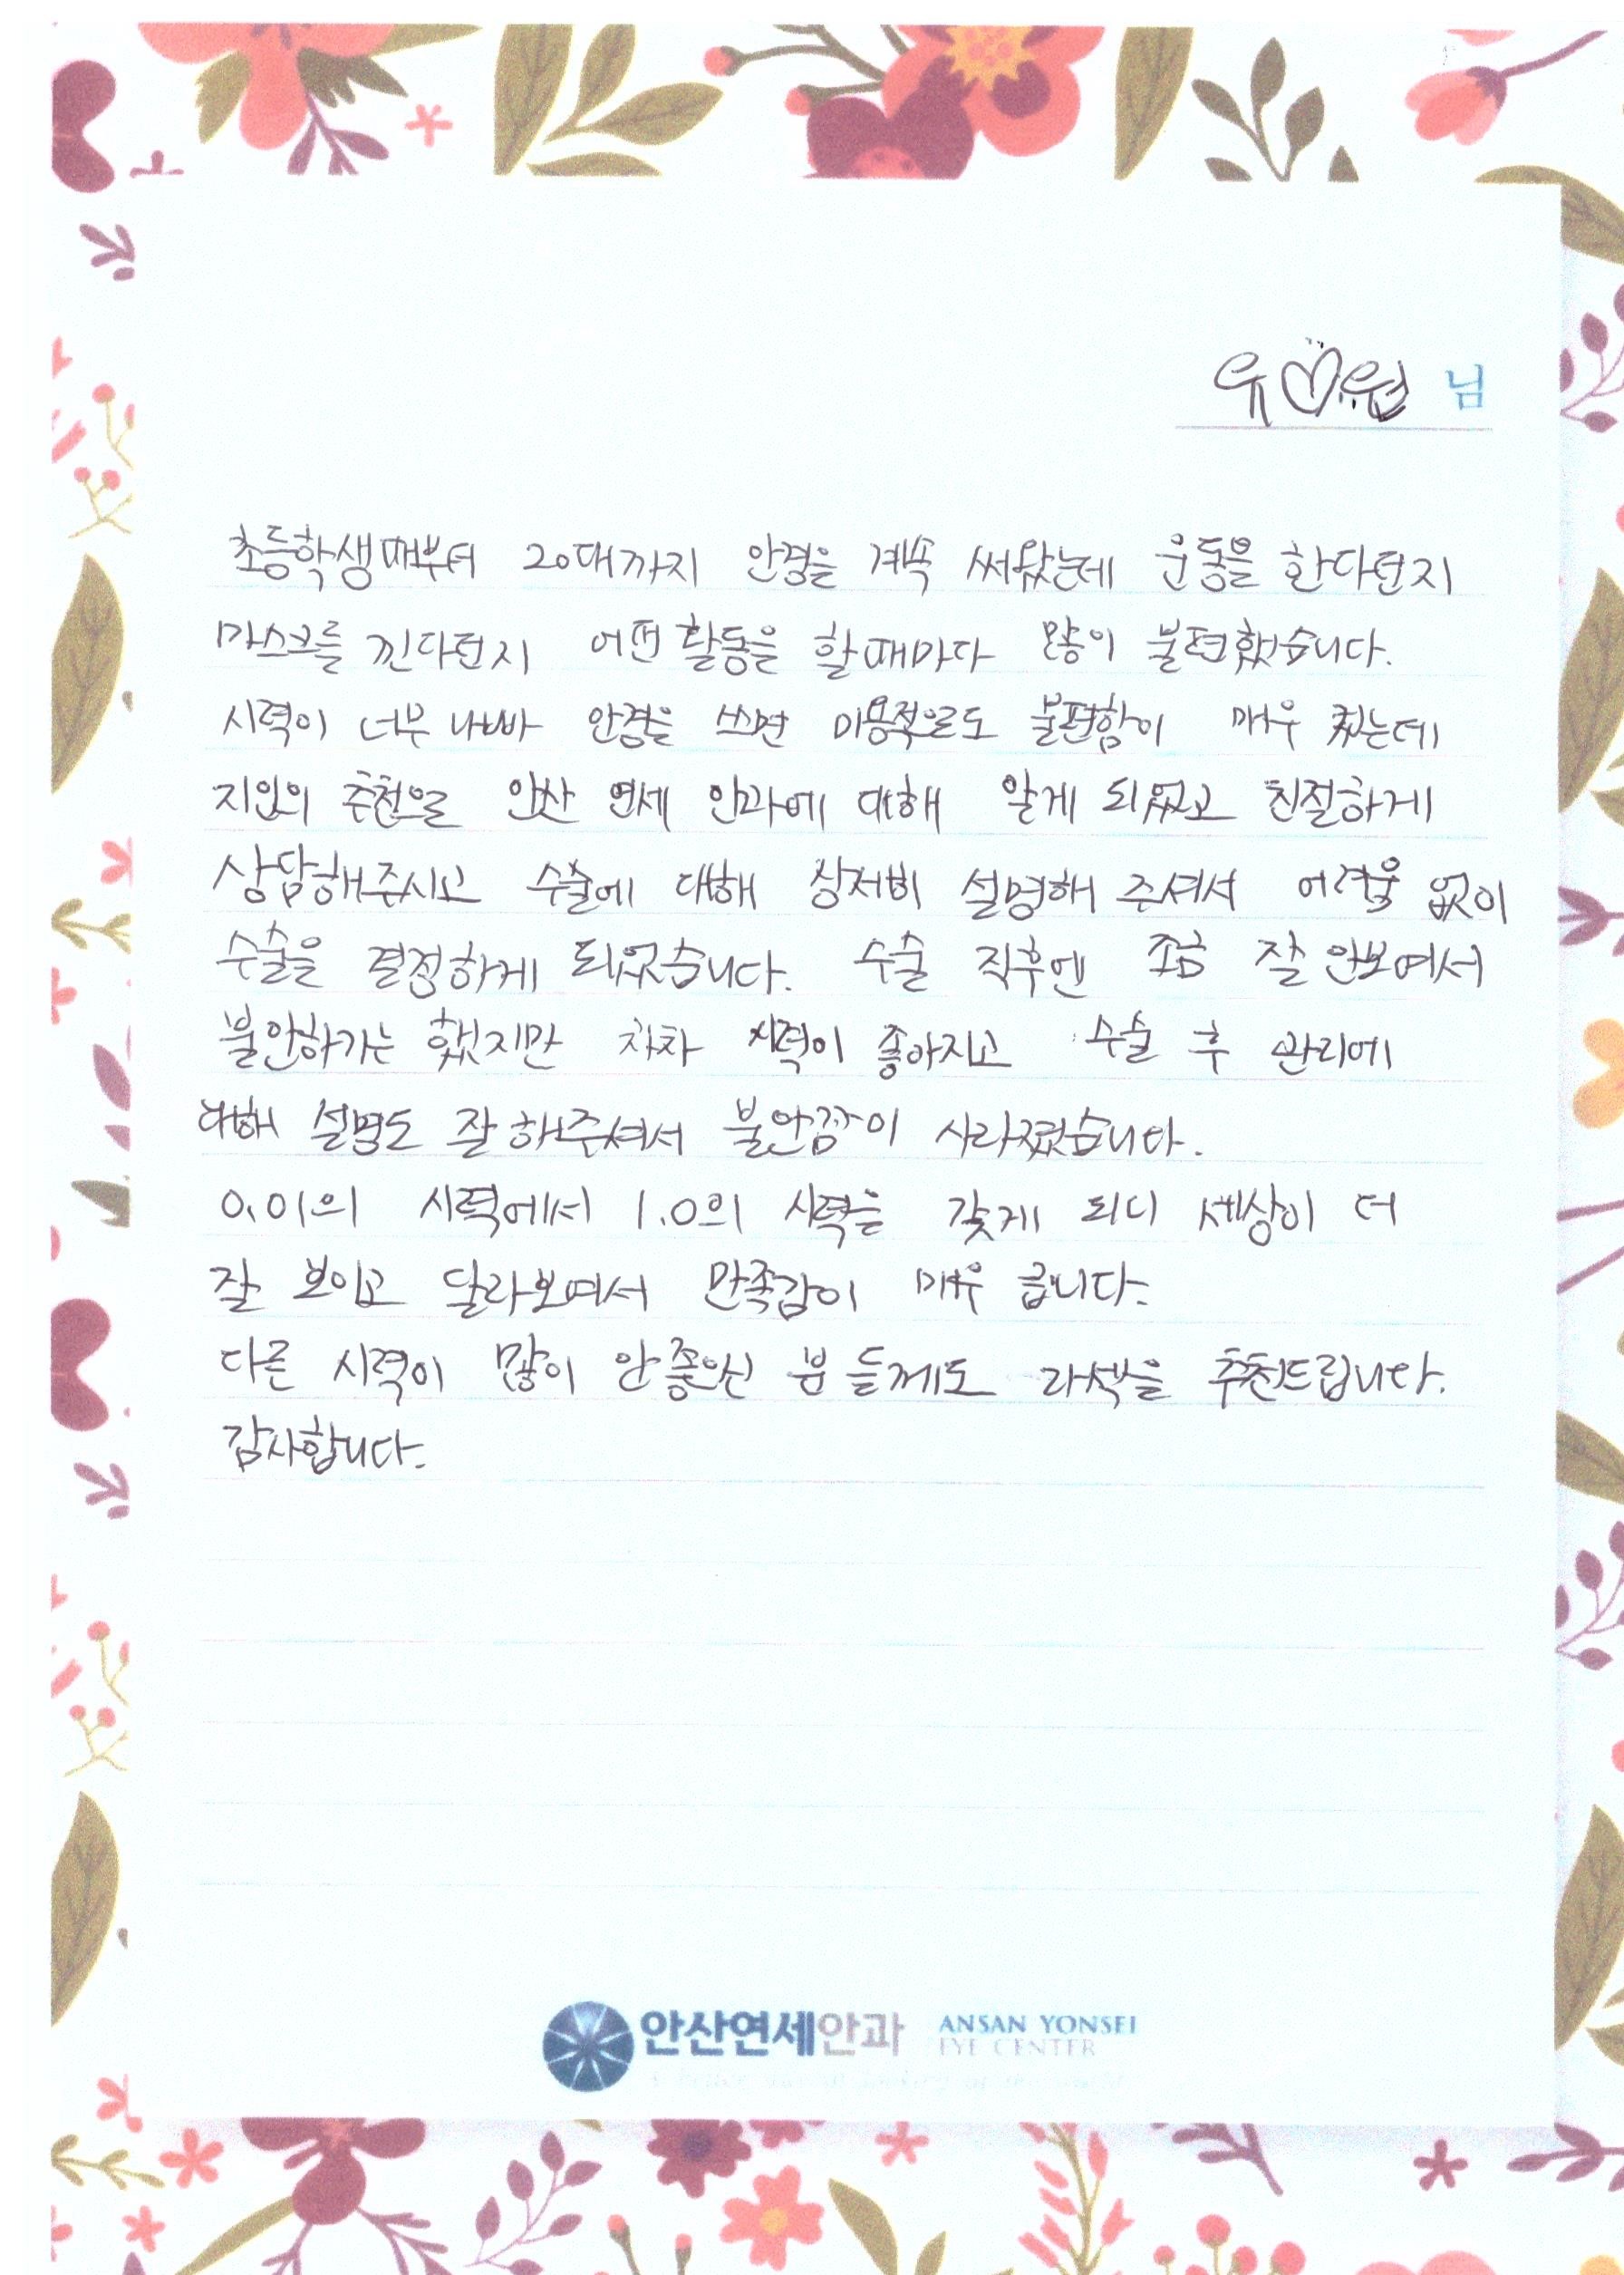 유♡원 님
초등학생때부터 20대까지 안경을 계속 써왔는데 운동을 한다던지
마스크를 낀다던지 어떤 활동을 할때마다 많이 불편했습니다.
시력이 너무 나빠 안경을 쓰면 미용적으로도 불편함이 매우 컸는데
지인의 추천으로 안산 연세 안과에 대해 알게 되었고 친절하게
상담해주시고 수술에 대해 상세히 설명해 주셔서 어려움 없이
수술을 결정하게 되었습니다. 수술 직후엔 조금 잘 안보여서
불안하기는 했지만 차차 시력이 좋아지고 수술 후 관리에
대해 설명도 잘 해주셔서 불안감이 사라졌습니다.
0.01의 시력에서 1.0의 시력을 갖게 되니 세상이 더
잘 보이고 달라보여서 만족감이 매우 큽니다.
다른 시력이 많이 안 좋으신 분들께도 라섹을 추천드립니다.
감사합니다.
안산연세안과 ANSAN YONSEI
EYE CENTER